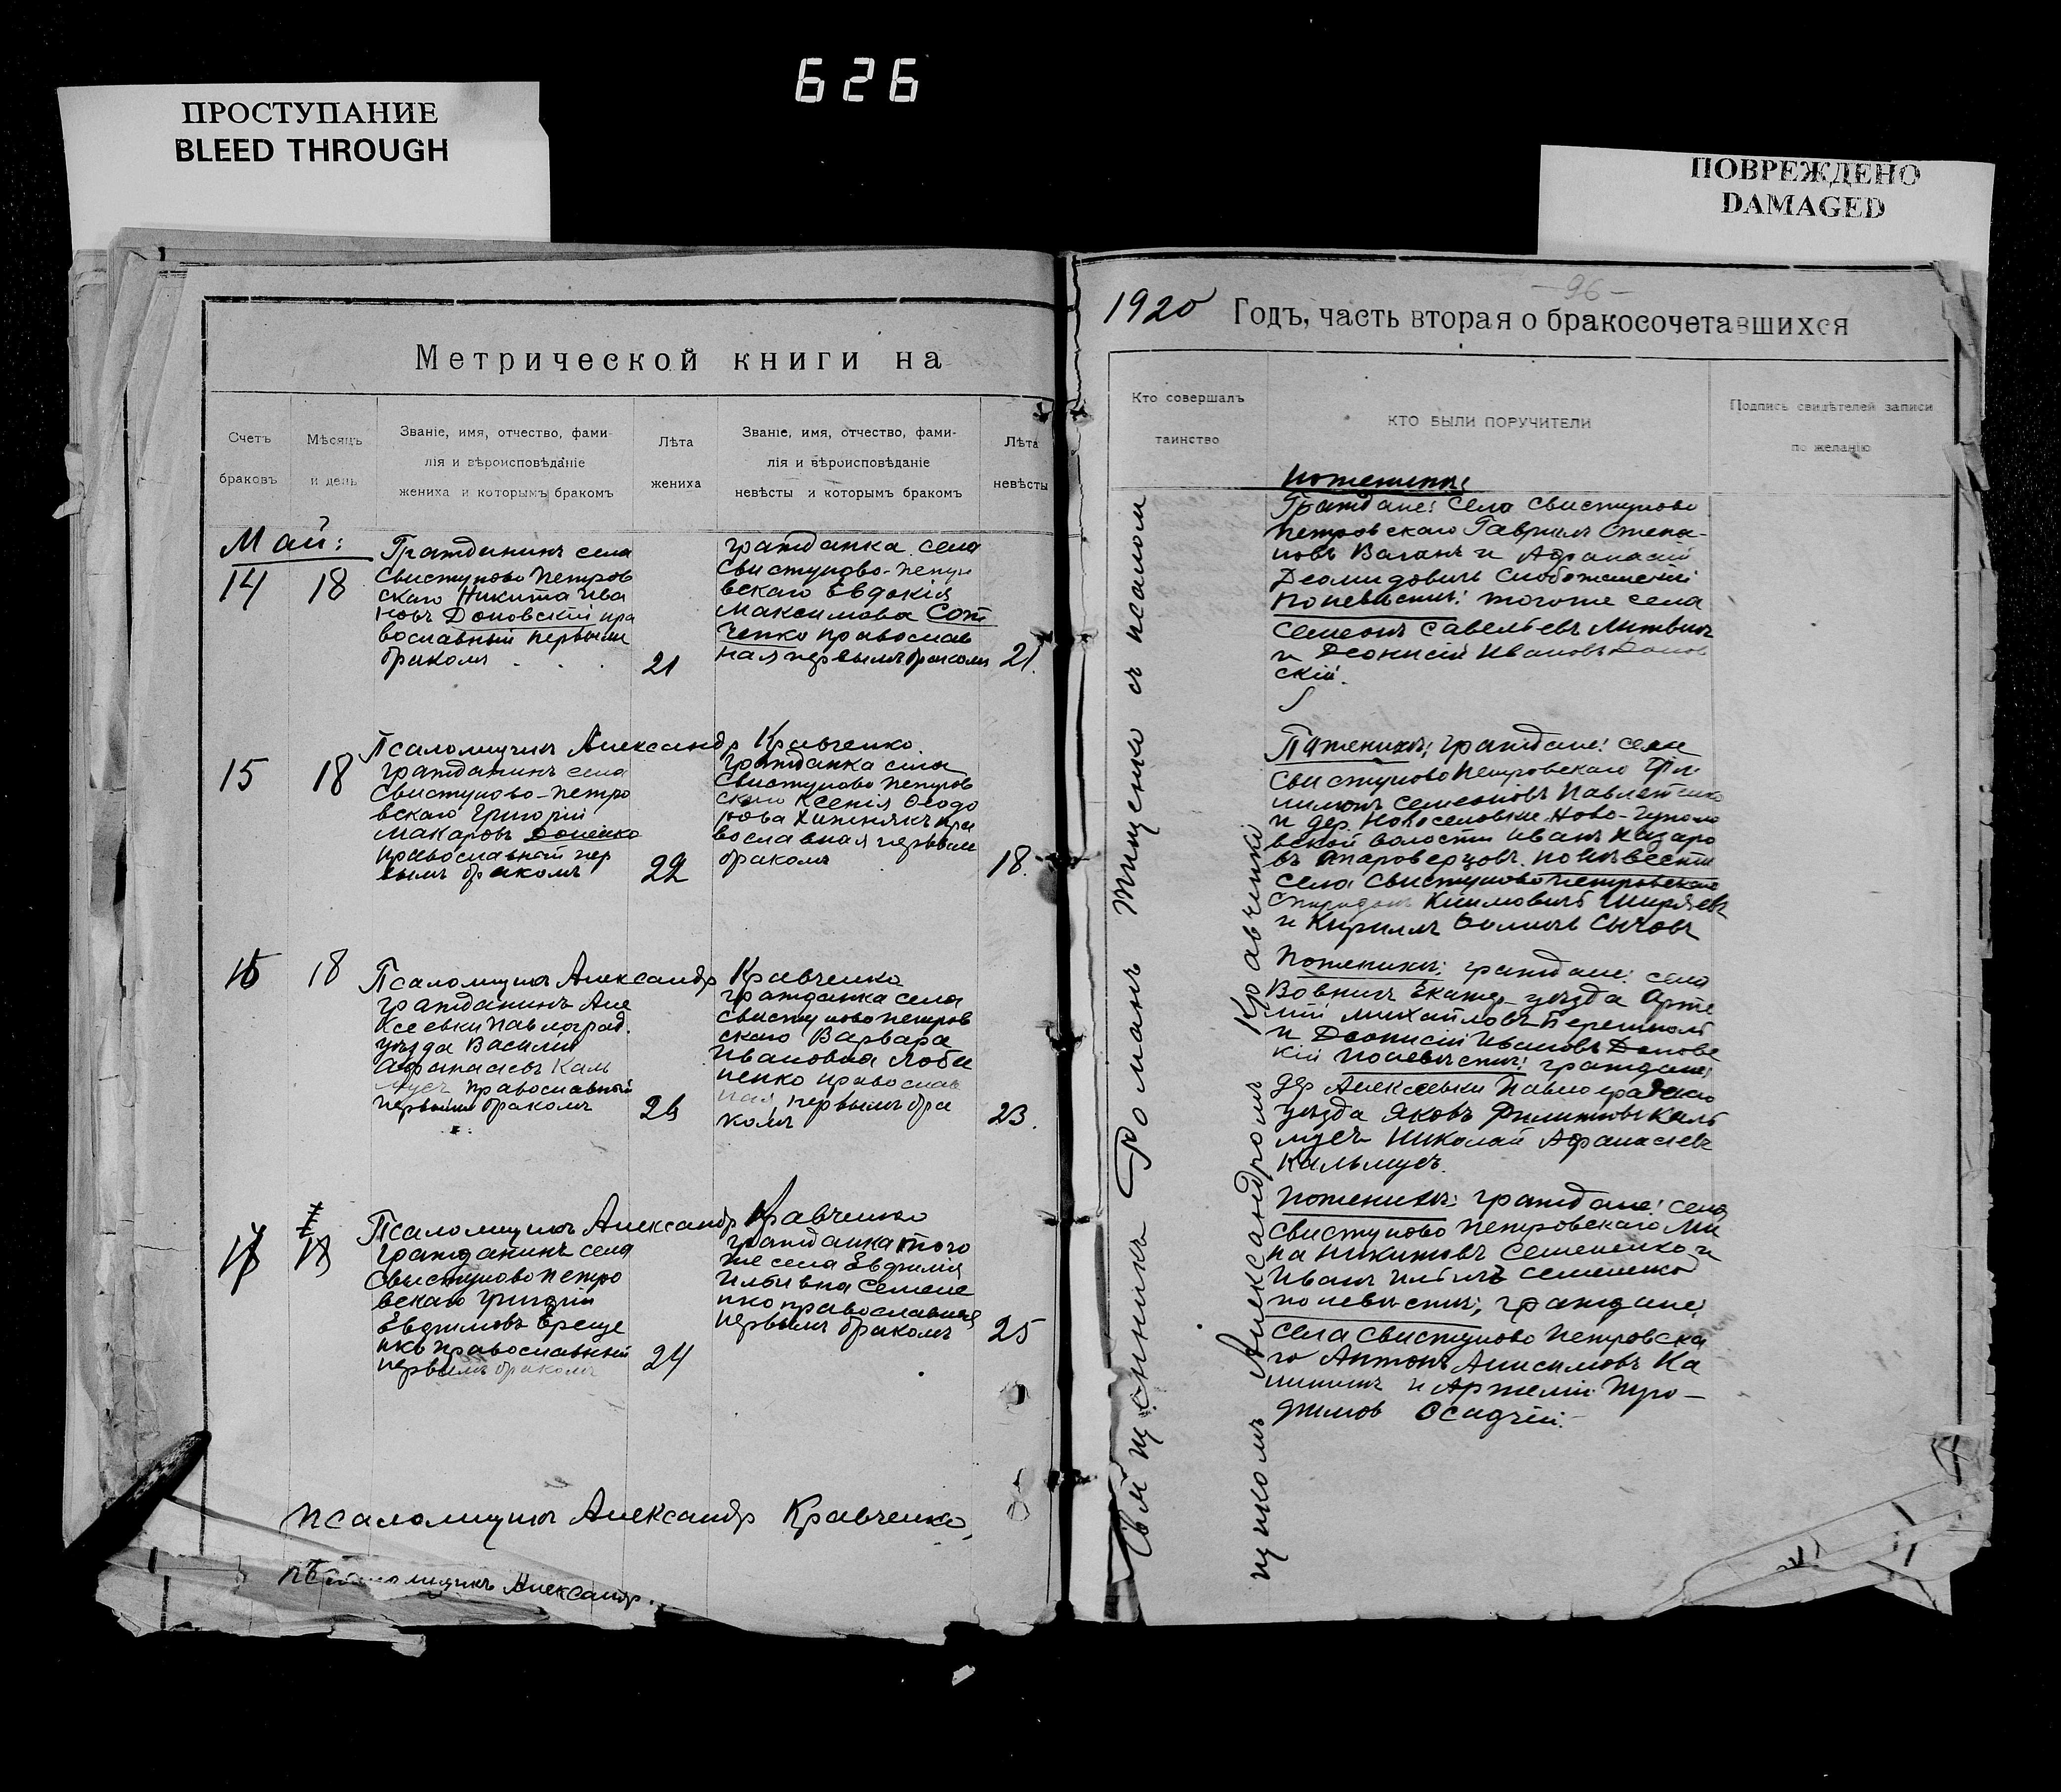 626
ПРОСТУПАНИЕ
BLEED THROUGH
ПОВРЕЖДЕНО
DAMAGED
Метрической книги на
Счетъ
браковъ
Мѣсяцъ
и день
Званіе, имя, отчество, фами-
лія и вѣроисповѣданіе
жениха и которымъ бракомъ
Лѣта
жениха
Званіе, имя, отчество, фами-
лія и вѣроисповѣданіе
невѣсты и которымъ бракомъ
Лѣта
невѣсты
Май:
14
18
Гражданинъ села
Свистуново Петров
скаго Никита Ива
новъ Доновскій пра
вославный первымъ
бракомъ
21
гражданка села
Свистуново-Петро
вскаго Евдокія
Максимова Сот
ченко православ
ная первымъ бракомъ
21.
Псаломщикъ Александр Кравченко
15
18
гражданинъ села
Свистуново-Петро
вскаго Григорій
Макаровъ
православный пер
вымъ бракомъ
22
гражданка села
Свистуново Петров
скаго Ксенія Феодо
рова Хижнякъ пра
вославная первымъ
бракомъ
18.
Псаломщикъ Александр Кравченко
16
18
гражданинъ Але
ксеевки Павлоград.
уѣзда Василій
Афанасіевъ Каль
мусъ православный
первымъ бракомъ
гражданка села
Свистуново Петров
скаго Варвара
Ивановна Лоба
ненко православ
ная первымъ бра
комъ
23.
Псаломщикъ Александр Кравченко
17
18
гражданинъ села
Свистуново Петро
вскаго Григорій
Евфимовъ
православный
первымъ бракомъ
24
гражданка того
же села Евфимія
Ильина Семене
нко православная
первымъ бракомъ
25
Псаломщикъ Александр Кравченко
Псаломщикъ Александр.
-96-
1920 Годъ, часть вторая о бракосочетавшихся
Кто совершалъ
таинство
КТО БЫЛИ ПОРУЧИТЕЛИ
Подпись свидѣтелей записи
по желанію
Священникъ Романъ Тищенко съ псалом
щикомъ Александромъ Кравченко
По женихѣ:
Граждане: села Свистуново
Петровскаго Гавриилъ Степа-
новъ Ваганъ и Афанасій
Деомидовичъ
По невѣстѣ: того же села
Семеонъ Савельевъ Литвинъ
и Діонисій Ивановъ Донов
скій.
По женихѣ: граждане: села
Свистуново Петровскаго Фи
лимонъ Семеоновъ Павленко
и дер. Новоселовки Ново-
вской волости Иванъ Назаро
въ По невѣстѣ
села Свистуново Петровскаго
Спиридонъ Климовичъ Ширяевъ
и Кириллъ Сычовъ
По женихѣ: граждане: села
Вовнигъ Екатер. уѣзда Арте
мій Михайловъ
и Діонисій Ивановъ Доновс
кій По невѣстѣ: граждане:
дер Алексеевки Павлоградскаго
уѣзда Яковъ Филиповъ Каль
мусъ Николай Афанасіевъ
Кальмусъ.
По женихѣ: граждане: села
Свистуново Петровскаго Ми
на Никитовъ Семененко и
Иванъ Ильинъ Семененко
по невѣстѣ: граждане
села Свистуново Петровска
го Антонъ Анисимовъ Ка
лининъ и Артемій Тро-
фимов Осадчій.